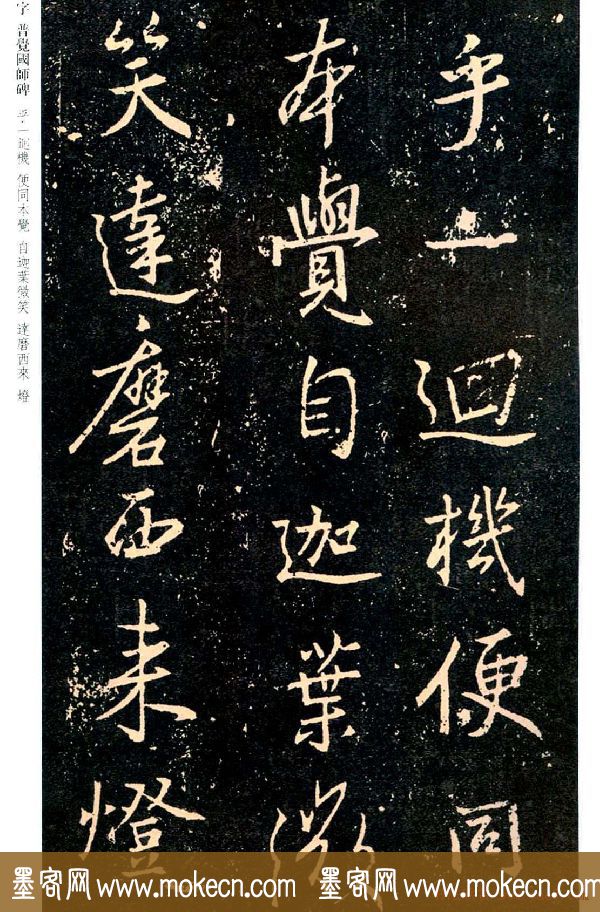 乎一迴機便同
本覺自迦葉微
笑達磨西来燈
字 普覺國師碑 乎一迴機 便同本覺 自迦葉微笑 達磨西來 燈
墨客网 www.mokecn.com 墨客网 www.mokecn.com